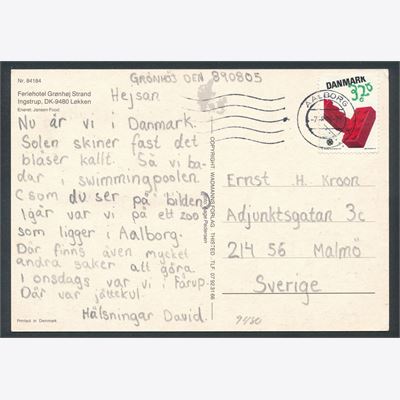 Nr. 84184
Feriehotel Grønhøj Strand
Ingstrup, DK-9480 Løkken
Eneret: Jensen Food
GRØNHØJ DEN 890805
Hejsan
Nu är vi i Danmark.
Solen skiner fast det
blåser kallt. Så vi ba-
dar i swimmingpoolen.
(som du ser på bilden)
Igår var vi på ett zoo
som ligger i Aalborg.
Där finns även mycket
andra saker att göra.
I onsdags var vi i Fårup.
Där var jättekul.
Hälsningar David.
Printed in Denmark
COPYRIGHT WADMANNS FORLAG THISTED TLF. 07 92 31 66
Pedersen
DANMARK
320
AALBORG
Ernst .H. Kroon
Adjunktsgatan 3c
214 56 Malmö
Sverige
9480